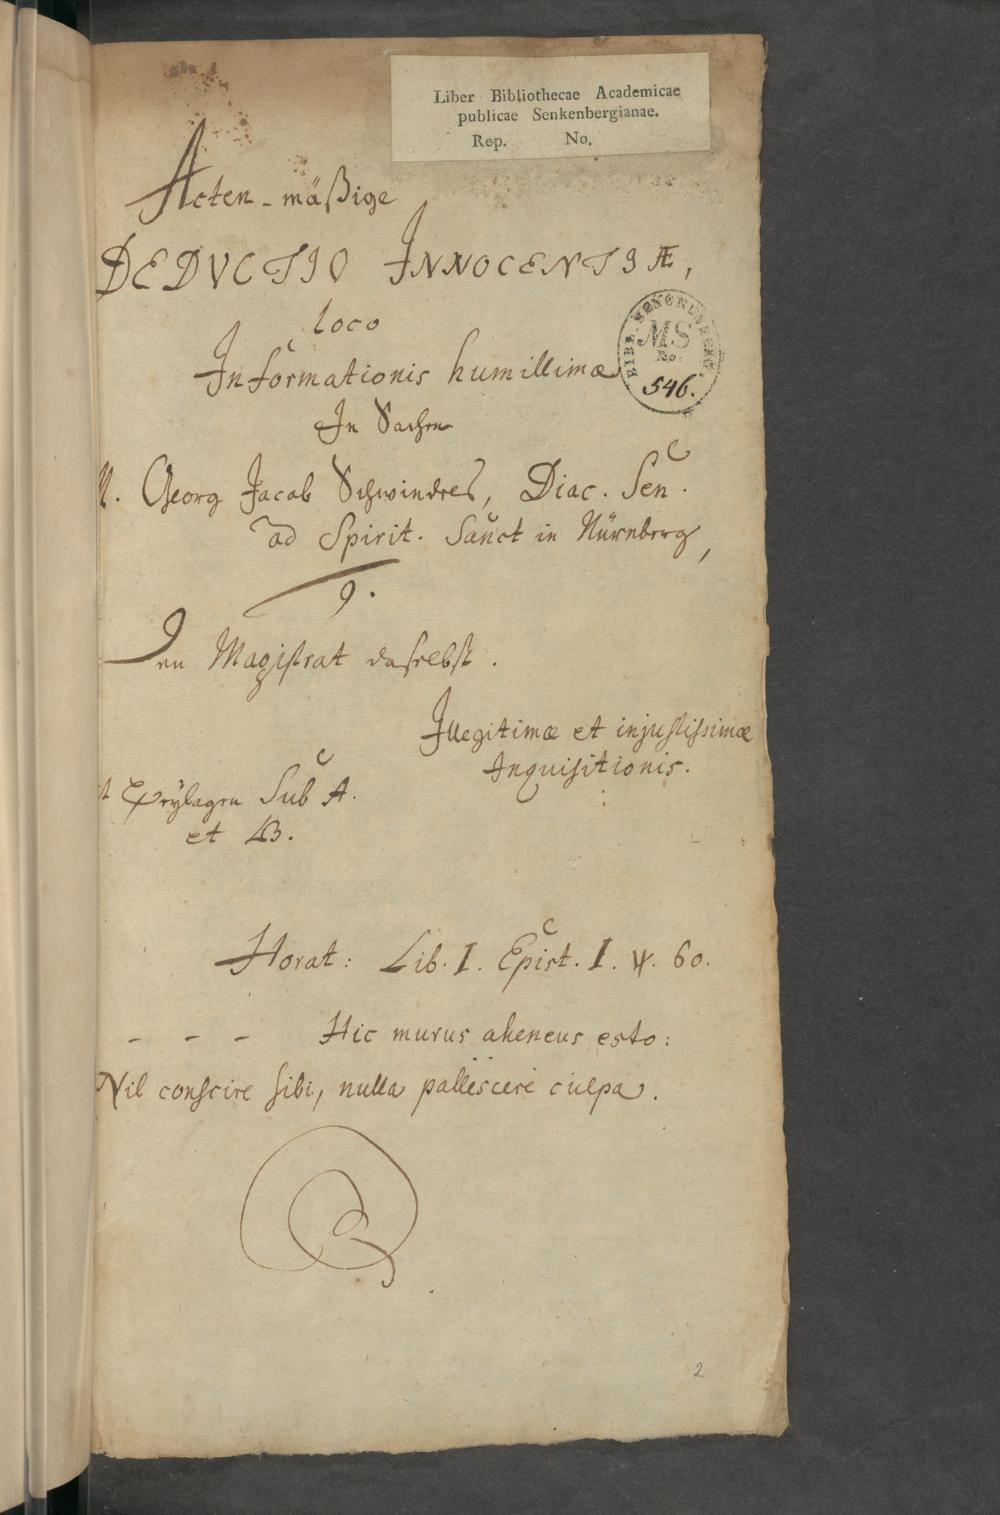 Liber Bibliothecae Academicae
publicae Senkenbergianae.
Rep. No.
Acten-mäßige
DEDVCTIO INNOCENTIÆ,
loco
Informationis humillimæ
BIBL. SENCKENBERG
MS
No.
546.
In Sachen
M. Georg Jacob Schwindels, Diac. Sen.
ad Spirit. Sanct in Nürnberg,
Den Magistrat daselbst.
Illegitimæ et injustissimæ
Inquisitionis.
Beylagen Sub A.
et B.
Horat: Lib. I. Epist. I. ℣. 60.
- - - Hic murus aheneus esto:
Nil conscire sibi, nulla pallescere culpa.
2